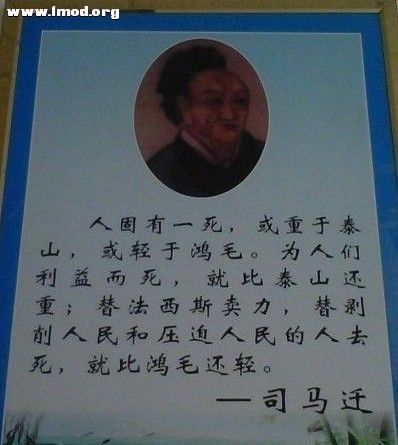 www.lmod.org
人固有一死，或重于泰
山，或轻于鸿毛。为人们
利益而死，就比泰山还
重；替法西斯卖力，替剥
削人民和压迫人民的人去
死，就比鸿毛还轻。
—司马迁